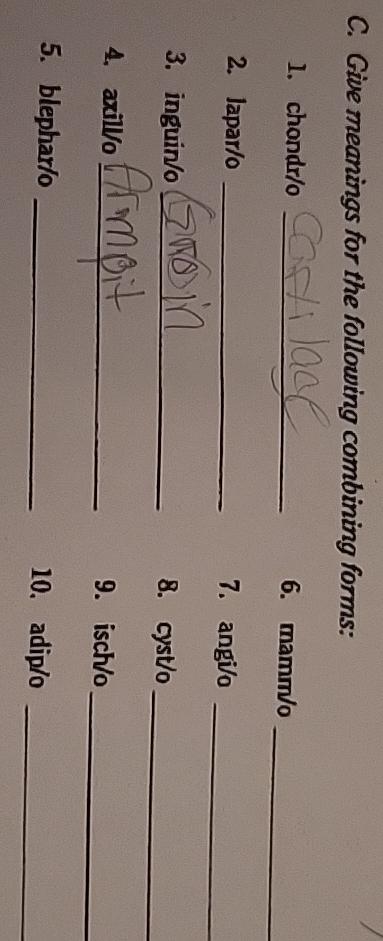 C. Give meanings for the following combining forms:
1. chondr/o Cartilage
2. lapar/o
3. inguin/o Groin
4. axill/o Armpit
5. blephar/o
6. mamm/o
7. angi/o
8. cyst/o
9. isch/o
10. adip/o